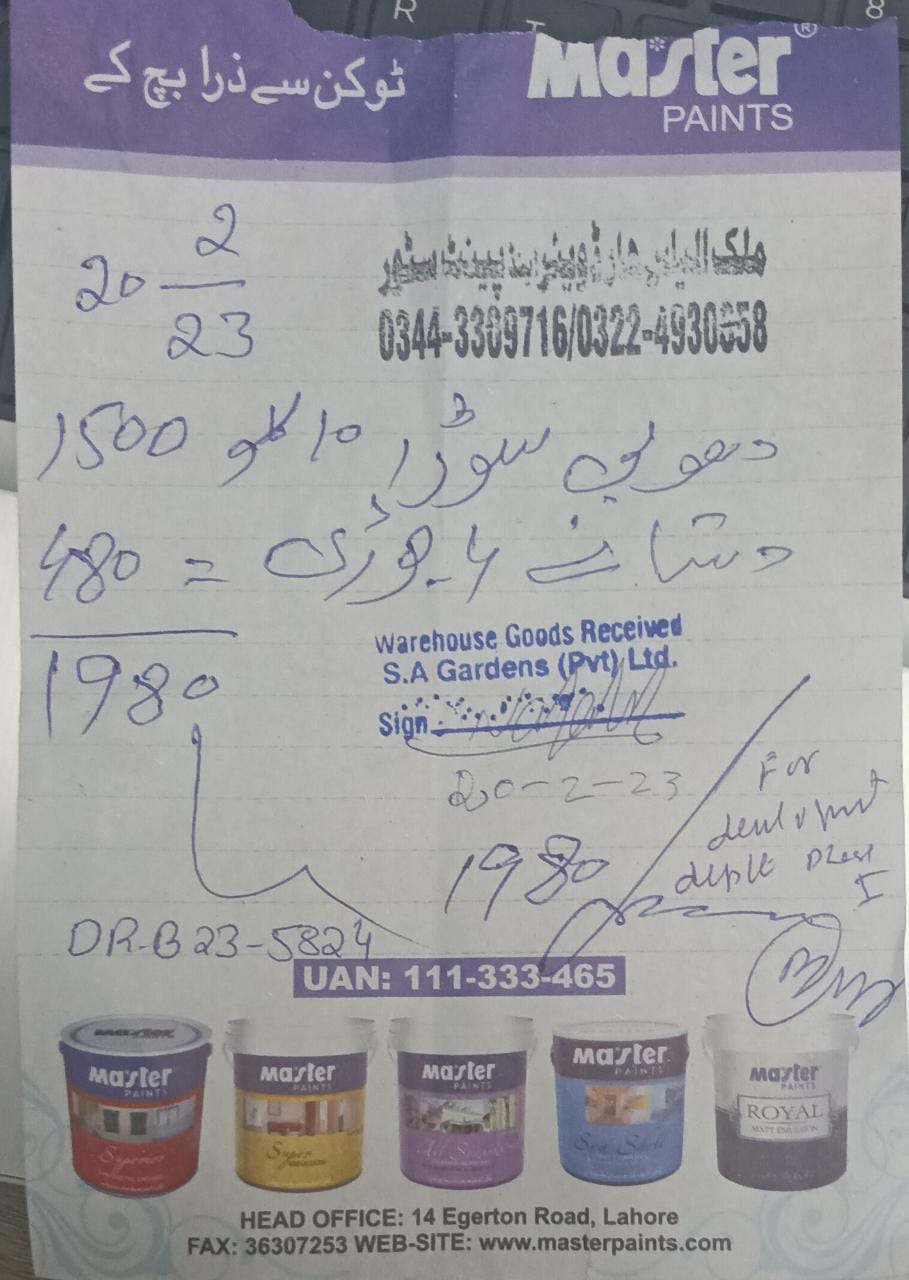 ٹوکن سے ذرا بچ کے
Master®
PAINTS
20 2/23
ملک الیاس ہارڈویئر اینڈ پینٹ سٹور
0344-3309716/0322-4930658
دھوبی سوڈا 10 کلو 1500
دستانے 4 جوڑی = 480
1980
Warehouse Goods Received
S.A Gardens (Pvt) Ltd.
Sign
20-2-23
1980
For
depth
I
DR-B23-5824
UAN: 111-333-465
Master PAINTS Superior
Master PAINTS Super EMULSION
Master PAINTS
Master PAINTS
Master PAINTS ROYAL MATT EMULSION
HEAD OFFICE: 14 Egerton Road, Lahore
FAX: 36307253 WEB-SITE: www.masterpaints.com